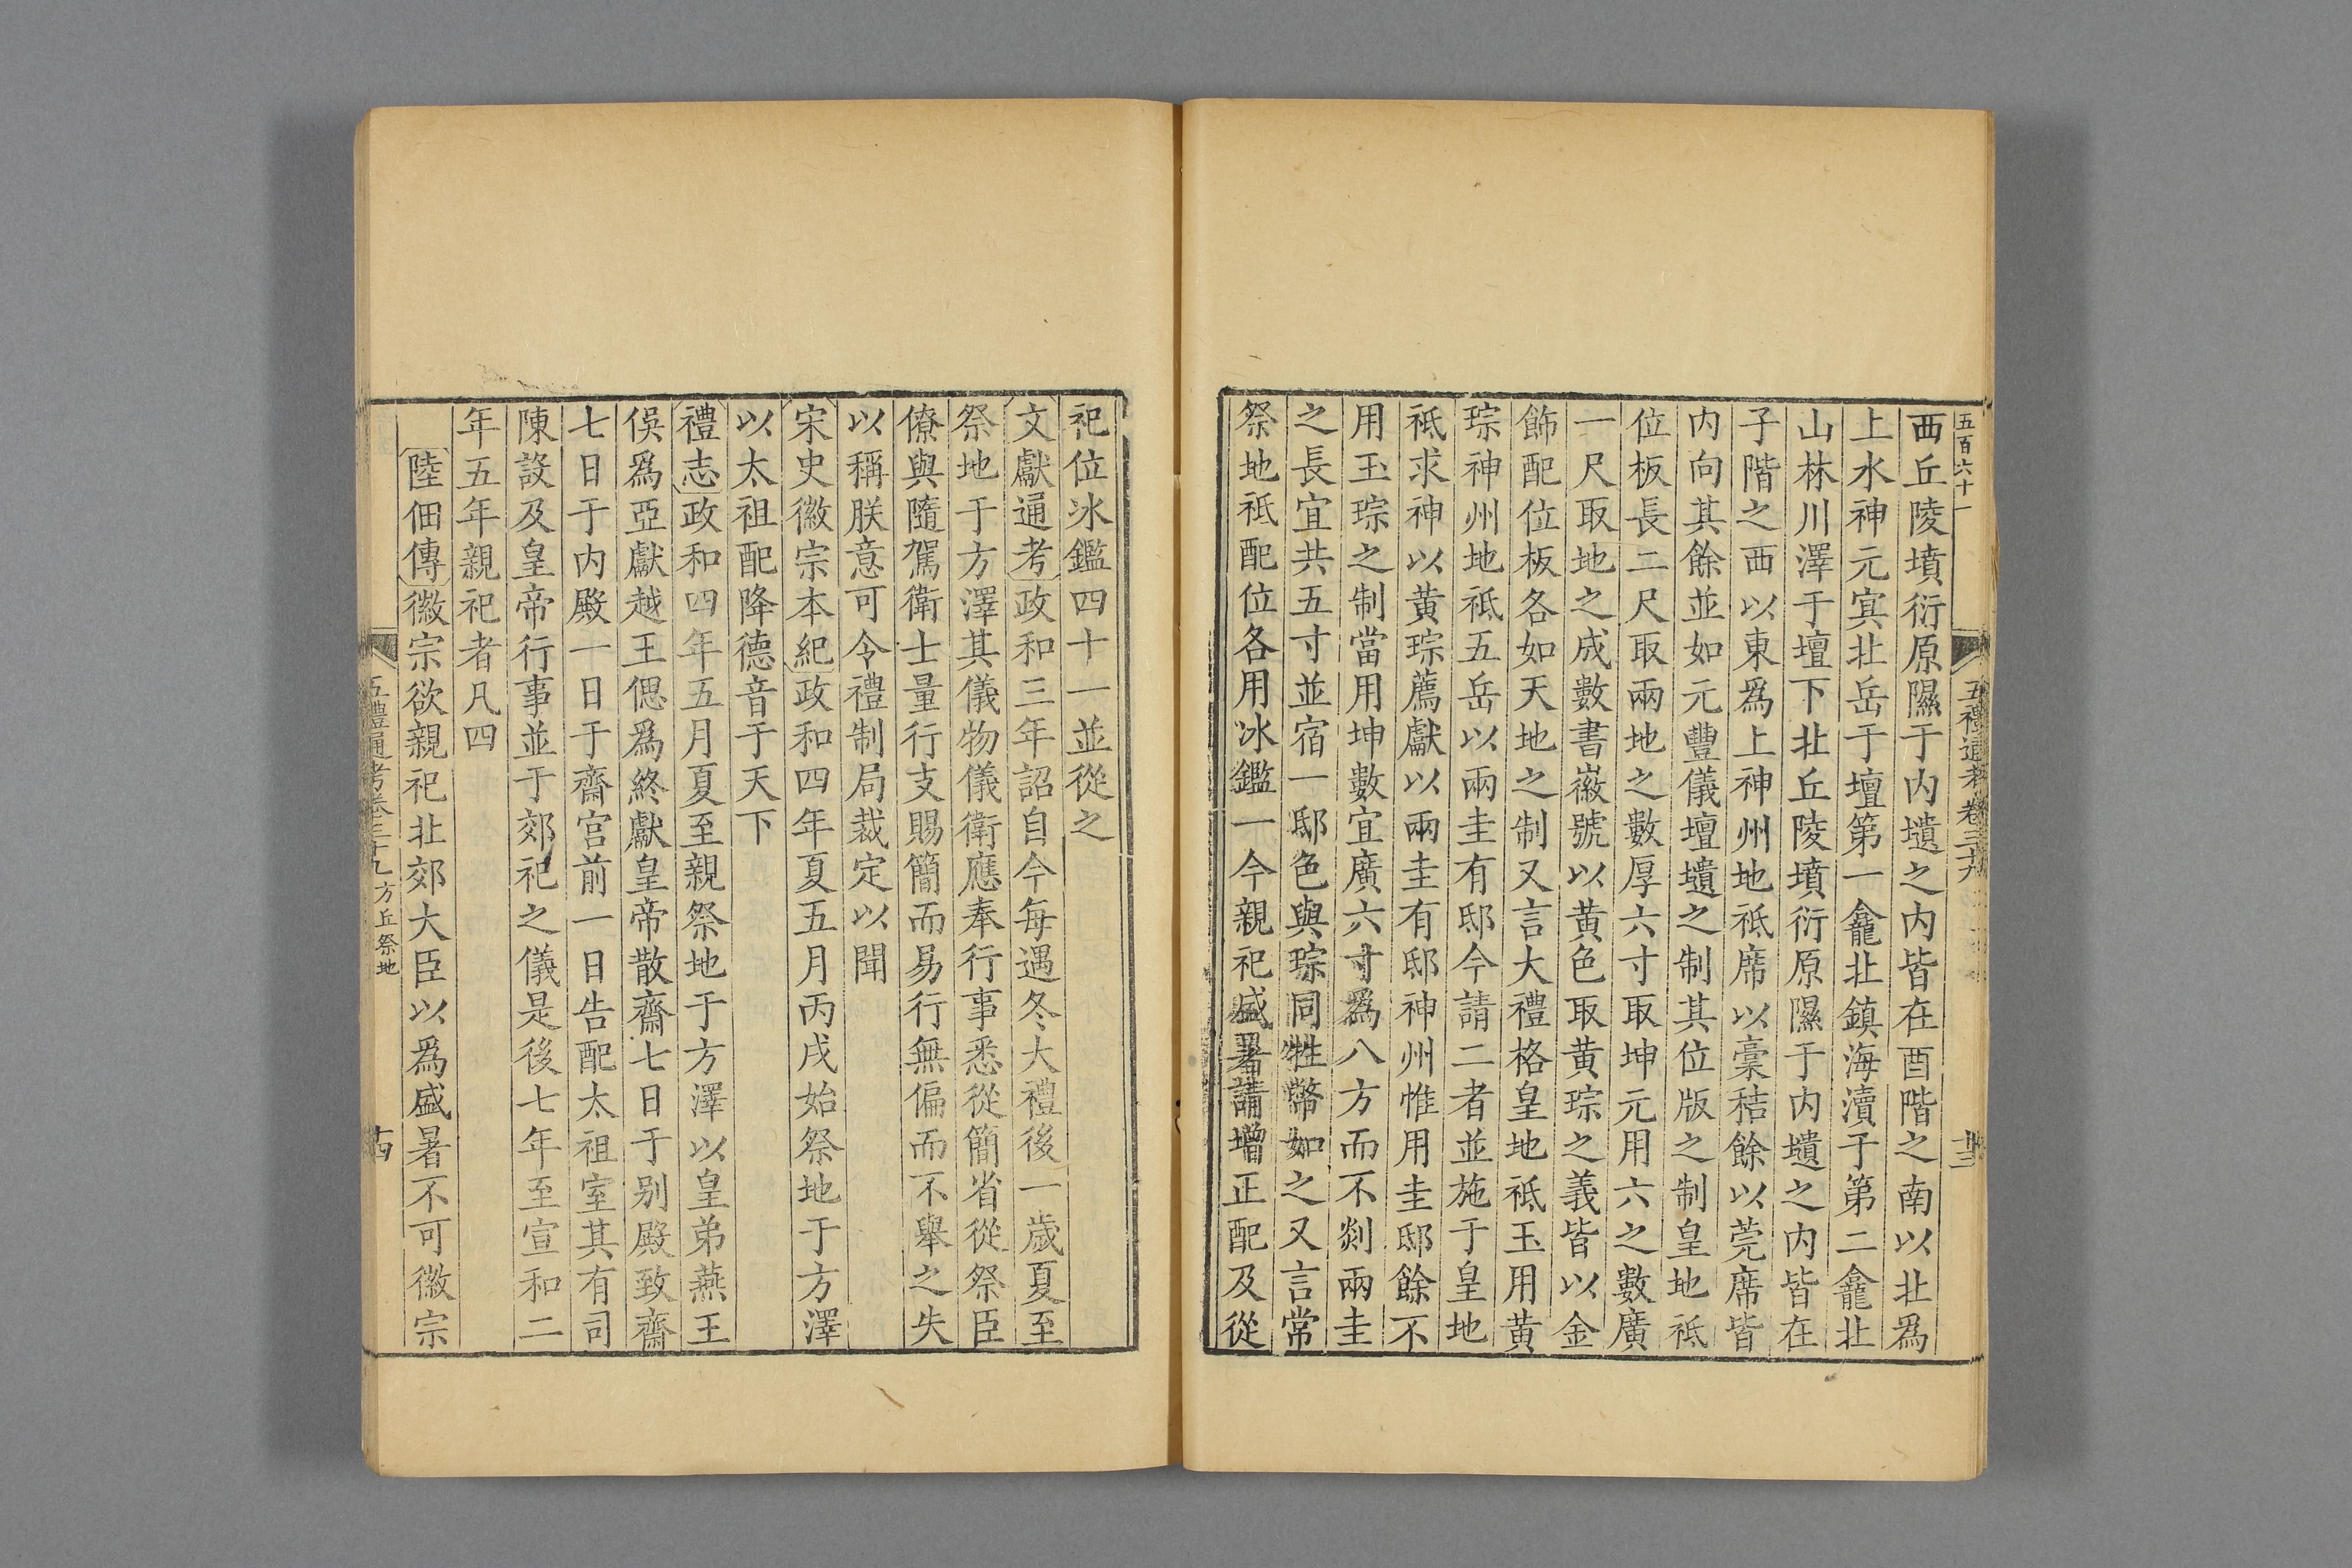 五百六十一
五禮通考卷三十九
西丘陵墳衍原隰于内壝之内皆在酉階之南以北爲
上水神元冥北岳于壇第一龕北鎮海瀆于第二龕北
山林川澤于壇下北丘陵墳衍原隰于内壝之内皆在
子階之西以東爲上神州地祇席以藁秸餘以莞席皆
内向其餘並如元豐儀壇壝之制其位版之制皇地祇
位板長二尺取兩地之數厚六寸取坤元用六之數廣
一尺取地之成數書徽號以黄色取黄琮之義皆以金
飾配位板各如天地之制又言大禮格皇地祇玉用黄
琮神州地祇五岳以兩圭有邸今請二者並施于皇地
祇求神以黄琮薦獻以兩圭有邸神州惟用圭邸餘不
用玉琮之制當用坤數宜廣六寸爲八方而不剡兩圭
之長宜共五寸並宿一邸色與琮同牲幣如之又言常
祭地祇配位各用冰鑑一今親祀盛暑請增正配及從
祀位冰鑑四十一並從之
文獻通考政和三年詔自今每遇冬大禮後一歲夏至
祭地于方澤其儀物儀衛應奉行事悉從簡省從祭臣
僚與隨駕衛士量行支賜簡而易行無偏而不舉之失
以稱朕意可令禮制局裁定以聞
宋史徽宗本紀政和四年夏五月丙戌始祭地于方澤
以太祖配降德音于天下
禮志政和四年五月夏至親祭地于方澤以皇弟燕王
俁爲亞獻越王偲爲終獻皇帝散齋七日于别殿致齋
七日于内殿一日于齋宮前一日告配太祖室其有司
陳設及皇帝行事並于郊祀之儀是後七年至宣和二
年五年親祀者凡四
陸佃傳徽宗欲親祀北郊大臣以爲盛暑不可徽宗
五禮通考卷三十九 方丘祭地
十四